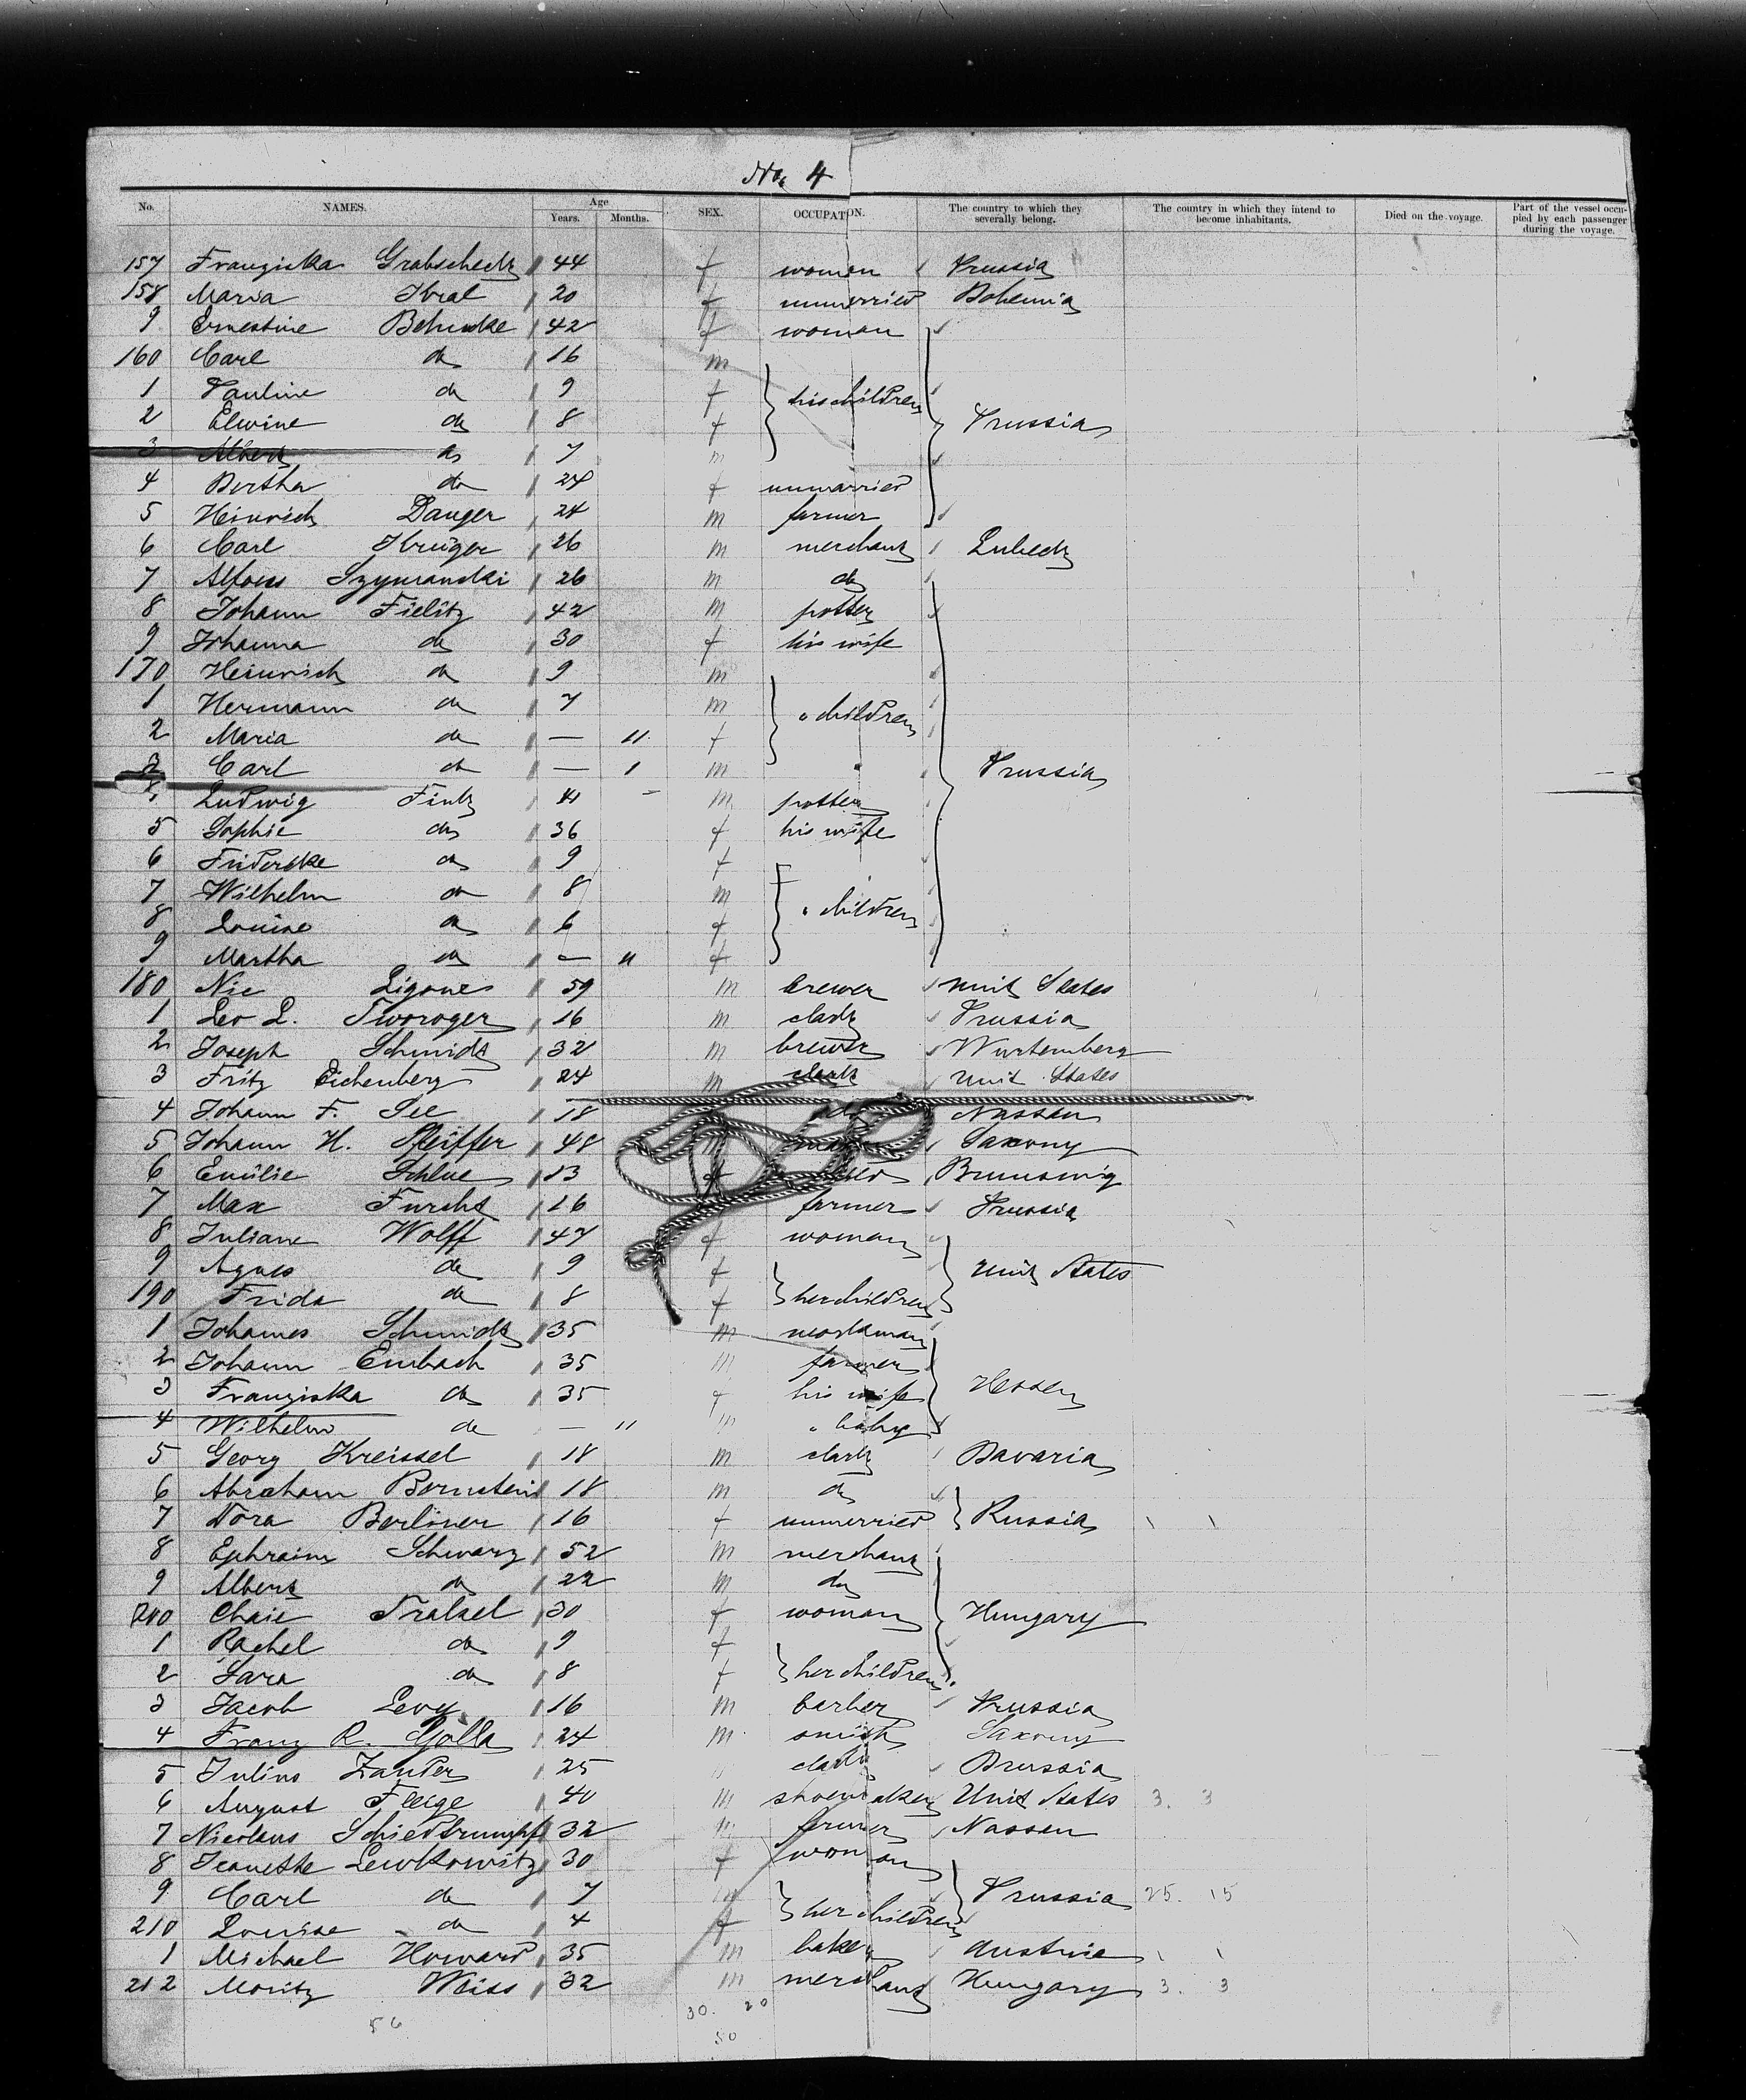 No. 4
No. NAMES. Age Years. Months. SEX. OCCUPATION. The country to which they severally belong. The country in which they intend to become inhabitants. Died on the voyage. Part of the vessel occupied by each passenger during the voyage.
157 Franziska Grabscheck 44 f woman Prussia
158 Maria 20 f unmerried Bohemia
9 Ernestine Behnke 42 f woman
160 Carl do 16 m
1 Pauline do 9 f his children
2 Elwine do 8 f Prussia
3 Albert do 7 m
4 Bertha do 24 f unmarried
5 Heinrich Danger 24 m farmer
6 Carl Krüger 26 m merchant Lubeck
7 Alfons Szymanski 26 m do
8 Johann Fielitz 42 m potter
9 Johanna do 30 f his wife
170 Heinrich do 9 m
1 Hermann do 7 m " children
2 Maria do — 11 f
3 Carl do — 1 m Prussia
4 Ludwig 41 m potter
5 Sophie do 36 f his wife
6 do 9 f
7 Wilhelm do 8 m
8 Louise do 6 f " children
9 Martha do — 11 f
180 Nic Ligowes 59 m brewer Unit States
1 Leo L. Tworoger 16 m clark Prussia
2 Joseph Schmidt 32 m brewer Wurtemberg
3 Fritz Eichenberg 24 m clark Unit States
4 Johann F. See 18 Nassau
5 Johann H. Pfeiffer 48 Saxony
6 Emilie Schlue 13 f Brunswig
7 Max Furcht 16 farmer Prussia
8 Juliane Wolff 47 f woman
9 Agnes do 9 f Unit States
190 Frida do 8 f her children
1 Johannes Schmidt 35 m workman
2 Johann Embach 35 m farmer
3 Franziska do 35 f his wife Hessen
4 Wilhelm do — 11 m " baby
5 Georg Kreissel 18 m clark Bavaria
6 Abraham Bernstein 18 m do
7 Dora Berliner 16 f unmerried Russia
8 Ephraim Schwarz 52 m merchant
9 Albert do 22 m do
200 Chaie Tralsel 30 f woman Hungary
1 Rachel do 9 f
2 Sara do 8 f her children
3 Jacob Levy 16 m barber Prussia
4 Franz R. Gölla 24 m smith Saxony
5 Julius Zander 25 clark Prussia
6 August Fleige 40 m shoemaker Unit States 3. 3
7 Nicolaus Schiedtrumpf 32 m farmer Nassau
8 Jeanette Lewkowitz 30 f woman
9 Carl do 7 m Prussia 25. 15
210 Louise do 4 f her children
1 Michael Howard 35 m baker Austria
212 Moritz Weiss 32 m merchant Hungary 3. 3
56 30. 20
50